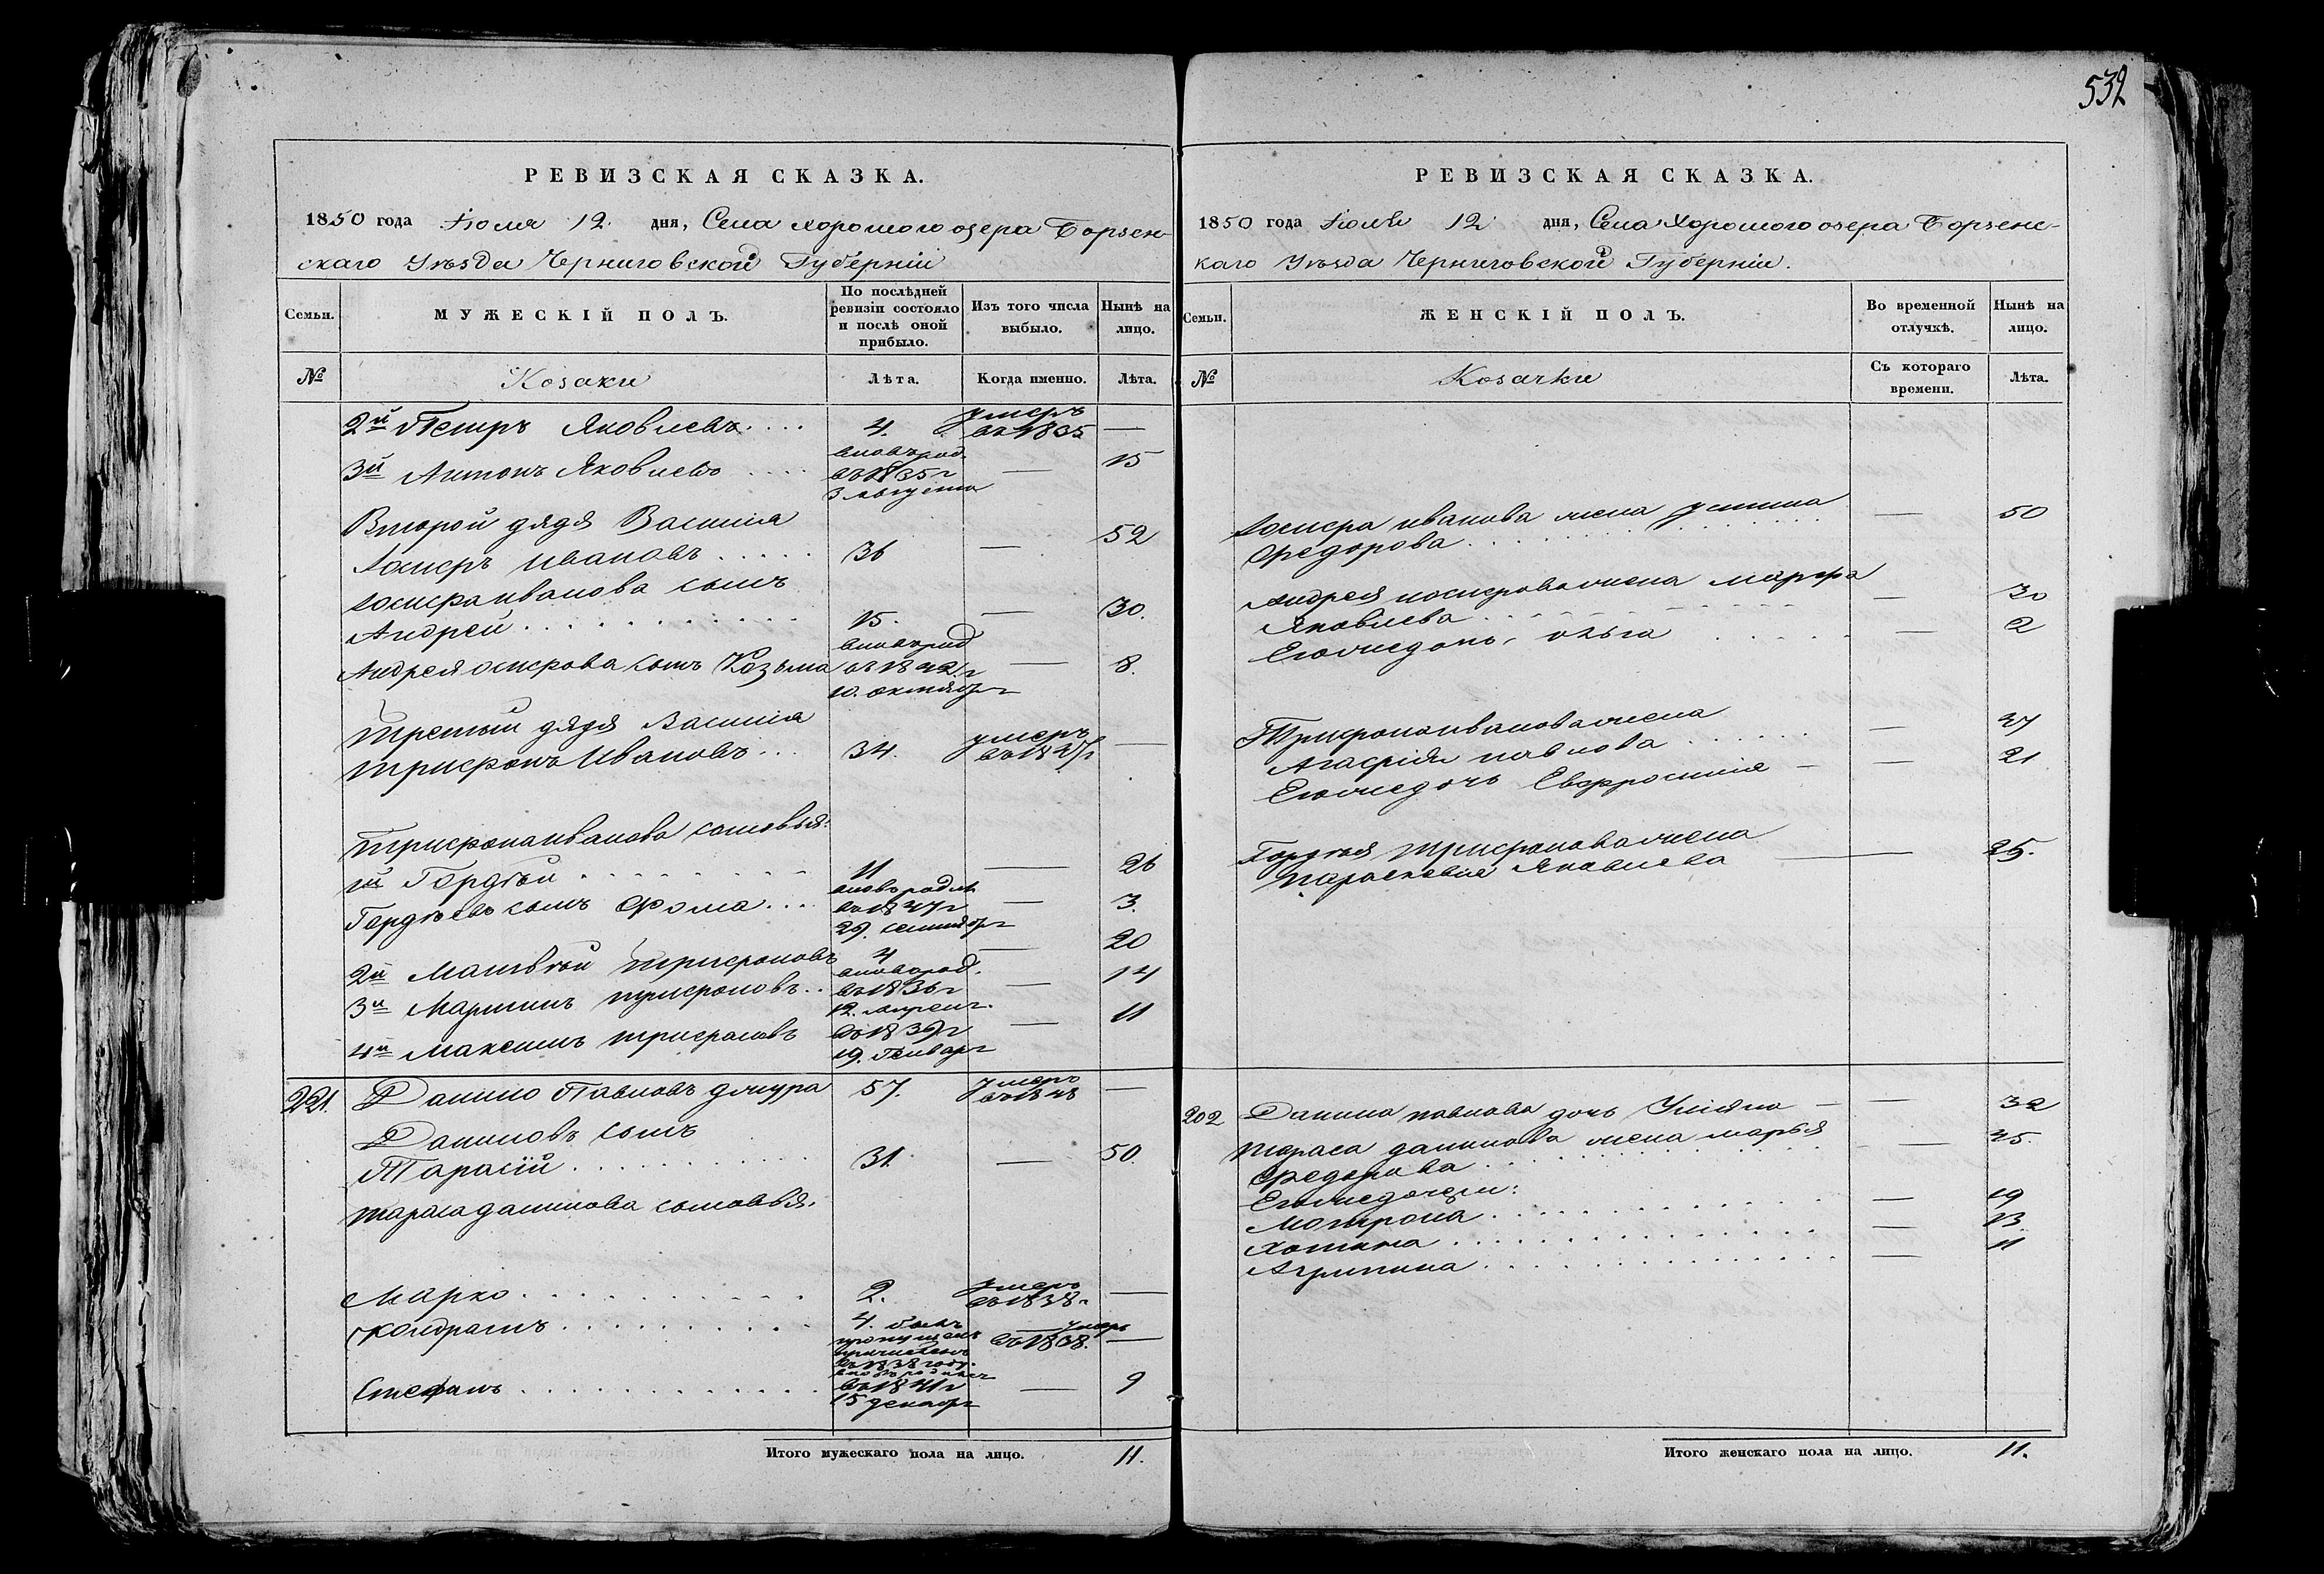 532
РЕВИЗСКАЯ СКАЗКА.
1850 года Іюля 12. дня, Села Хорошого озера Борзен-
скаго Уѣзда Черниговской Губерніи
Семьи.
МУЖЕСКІЙ ПОЛЪ.
По послѣдней ревизіи состояло и послѣ оной прибыло.
Изъ того числа выбыло.
Нынѣ на лицо.
№
Козаки
Лѣта.
Когда именно.
Лѣта.
2й Петръ Яковлевъ.... 4. умеръ въ 1835 —
3й Антонъ Яковлевъ .... вновь род. въ 1835 г 3 августа — 15
Второй дядя Василія
Іосифъ Ивановъ ..... 36 — 52
Іосифа Иванова сынъ
Андрей ........... 15. — 30.
Андрея осифова сынъ Козьма вновь род въ 1842 г 10. октября — 8.
Третый дядя Василія
Трифонъ Ивановъ... 34. умеръ въ 1847 г —
Трифона Иванова сыновья:
1й Гордѣй ......... 11 — 26
Гордѣевъ сынъ Фома... вновь родил въ 1847 г 29. сентября — 3.
2й Матвѣй Трифоновъ 4 — 20
3й Мартинъ Трифоновъ.. вновь род. въ 1836 г 12. апреля — 14
4й Максимъ Трифоновъ въ 1839 г 19. Генваря — 11
221. Данило Павловъ 57. умеръ —
Даниловъ сынъ
Тарасій ........... 31. — 50.
Тараса Данилова сыновья.
Марко ........... 2. умеръ въ 1838 г —
Кондратъ .......... 4. былъ пропущенъ причисленъ въ 1838 году. умеръ въ 1838. —
Стефанъ ............. вновь родился въ 1841 г 15 декабря — 9
Итого мужескаго пола на лицо. 11.
РЕВИЗСКАЯ СКАЗКА.
1850 года Іюля 12 дня, Села Хорошого озера Борзенс-
каго Уѣзда Черниговской Губерніи.
Семьи.
ЖЕНСКІЙ ПОЛЪ.
Во временной отлучкѣ.
Нынѣ на лицо.
№
Козачки
Съ котораго времени.
Лѣта.
Іосифа Иванова жена Устина
Федорова ........ — 50
Андрея Иосифова жена Марфа
Яковлева ........ — 30
Его же дочь, Ольга ..... — 2
Трифона Иванова жена
Агафія Павлова ...... — 47
Его же дочь Евфросинія — — 21
Гордѣя Трифонова жена
Параскевия Яковлева — 25.
202 Данила Павлова дочь Уліяна — — 32
Тараса Данилова жена Марья
Федорова ......... — 45.
Его же дочери:
Мотрона ............ — 19
Хотина ............. — 13
Агрипина ............ — 11
Итого женскаго пола на лицо. 11.